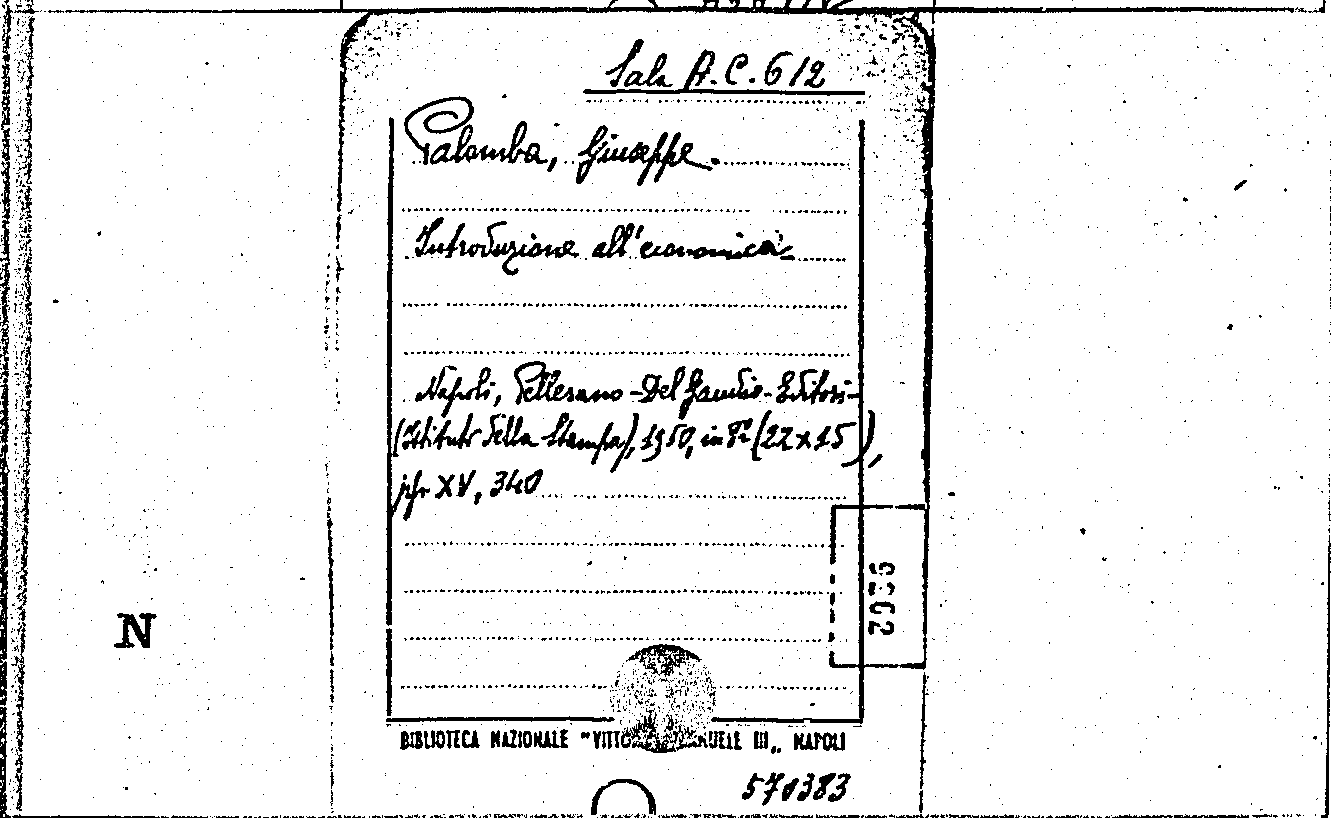 Sala A.C. 612
Palomba, Giuseppe.
Introduzione all'economica
Napoli, Pellerano-Del Gaudio-Editori-
(Istituto della Stampa), 1950, in 8º (22x15),
pp XV, 340
N
BIBLIOTECA NAZIONALE "VITTO ANUELE III„ NAPOLI